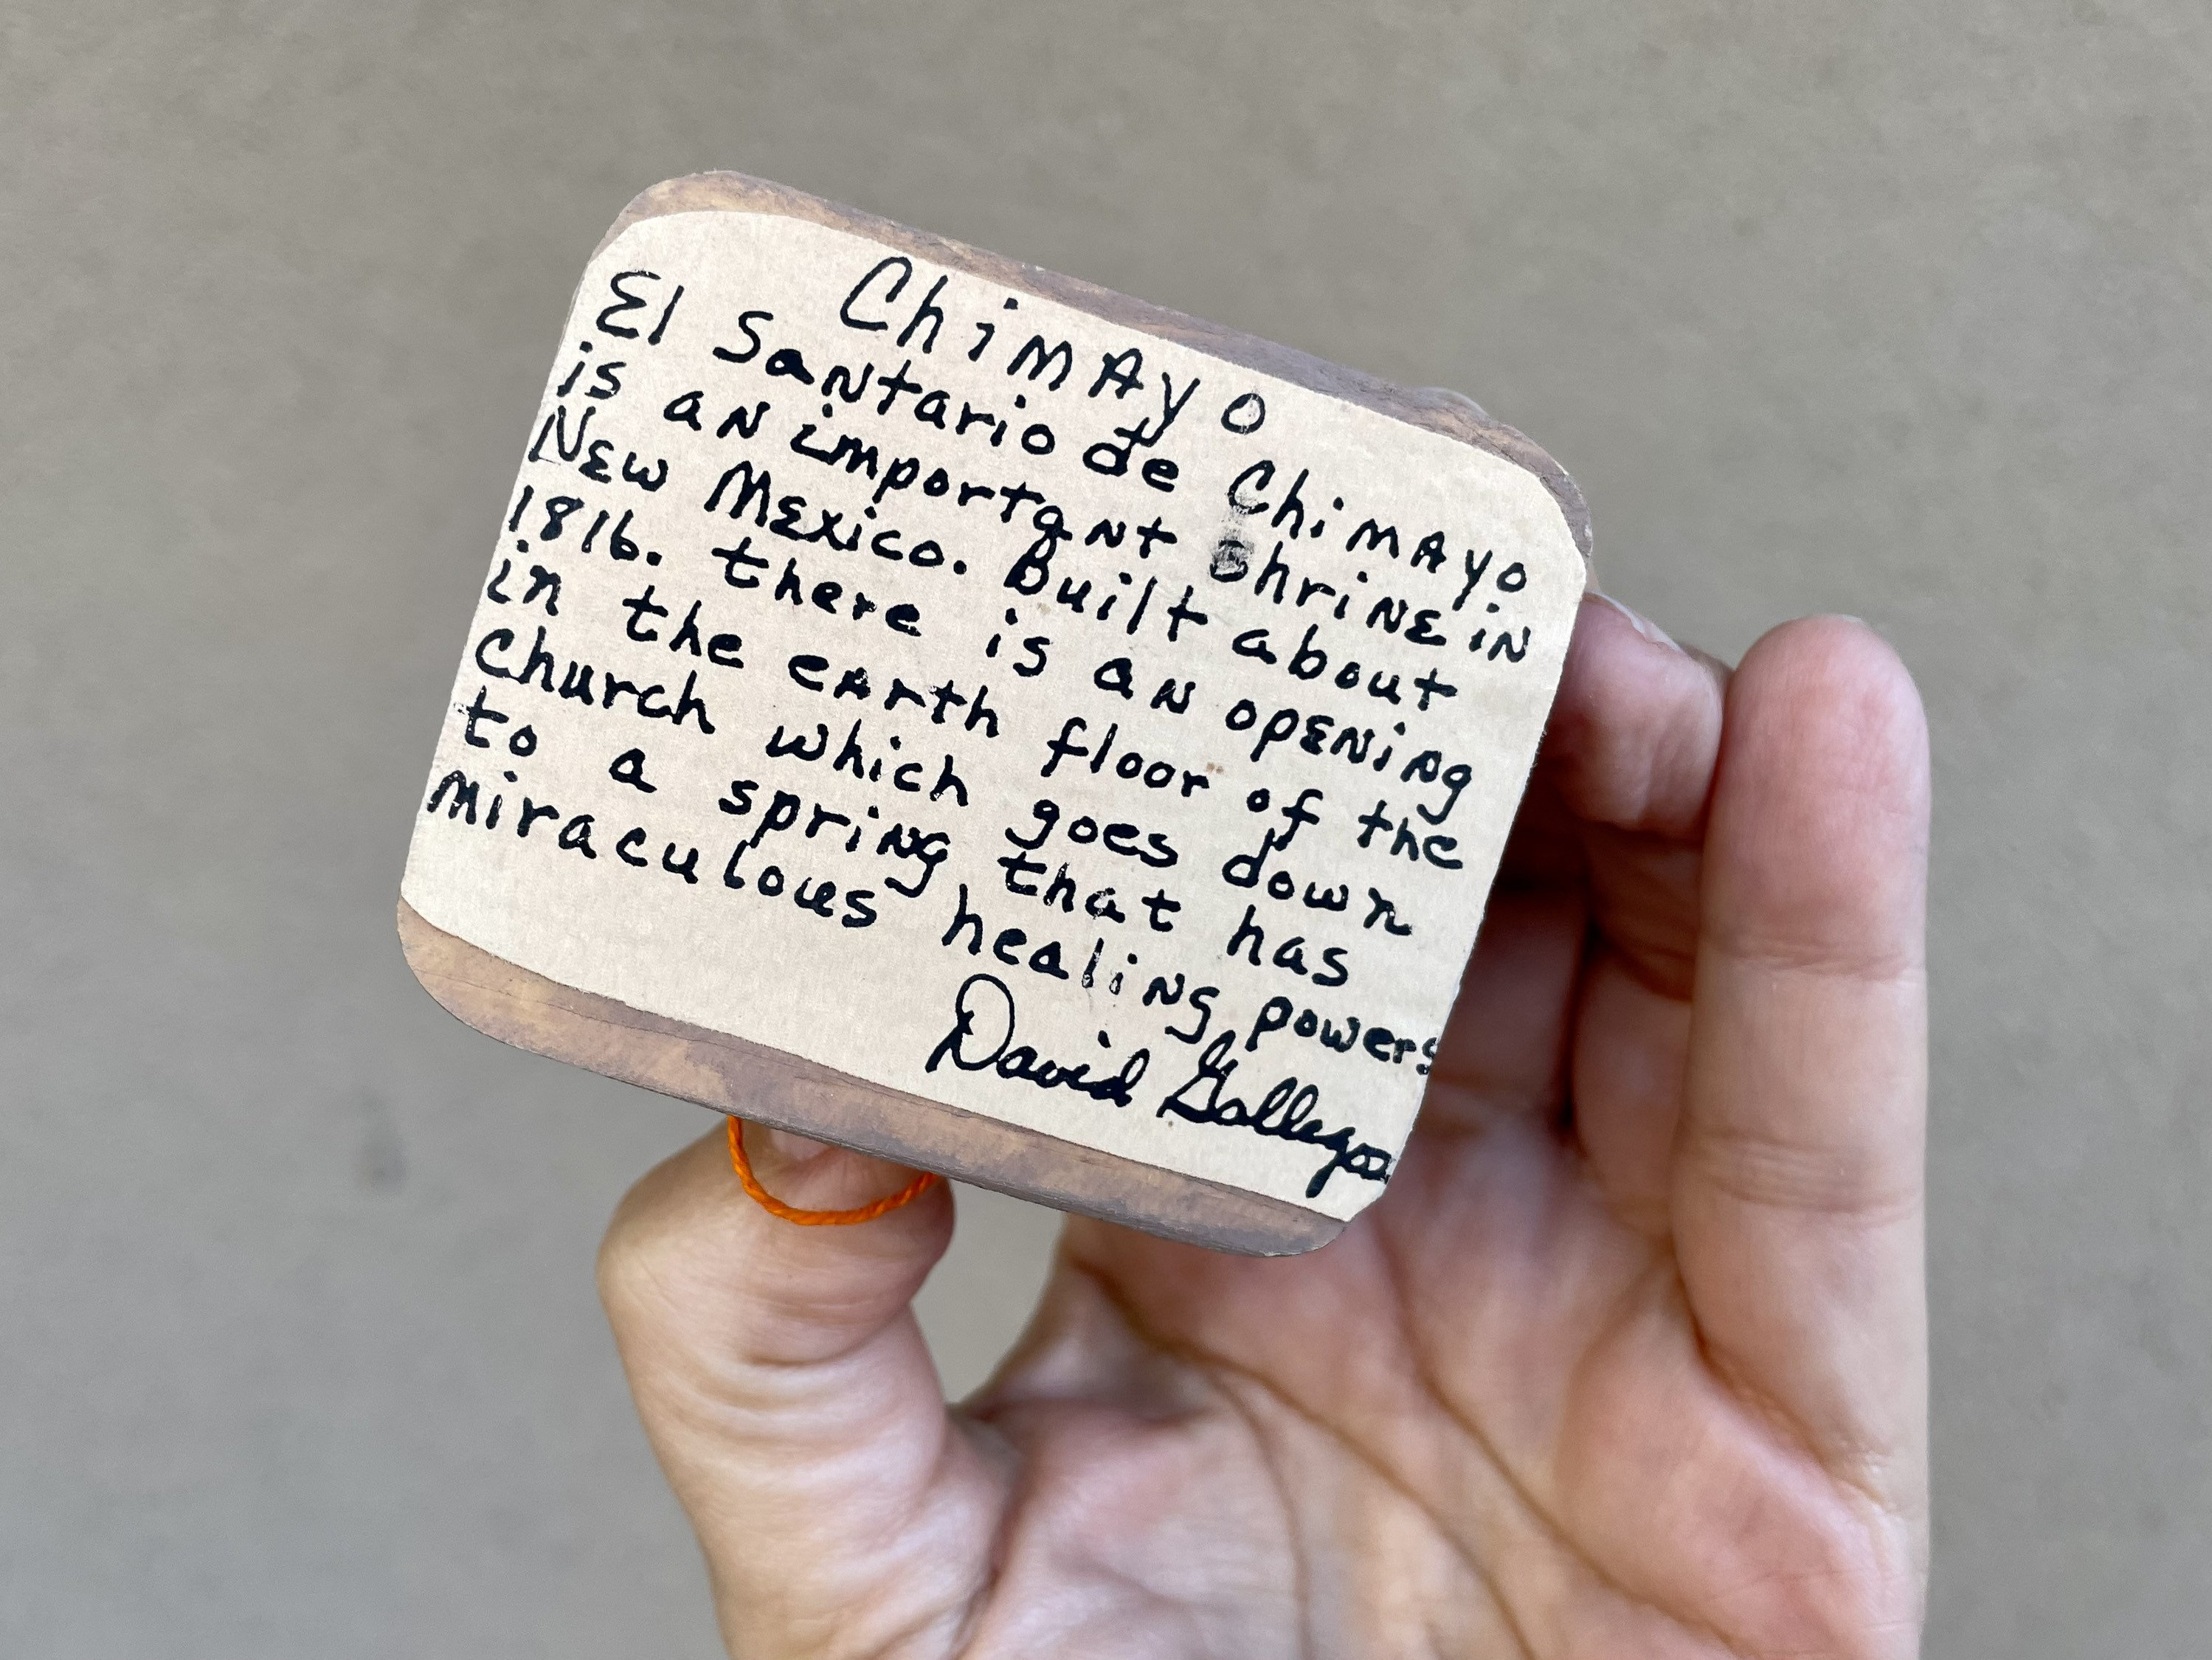 Chimayo
El Santario de Chimayo
is an important Shrine in
New Mexico. Built about
1816. there is an opening
in the earth floor of the
church which goes down
to a spring that has
miraculous healing powers
David Gallegos